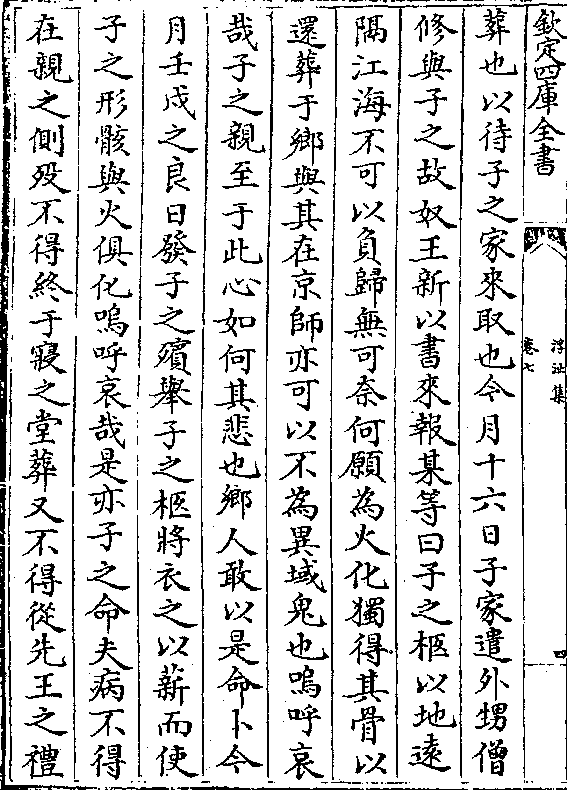 欽定四庫全書
浮沚集
卷七
四
葬也以待子之家來取也今月十六日子家遣外甥僧
修與子之故奴王新以書來報某等曰子之柩以地遠
隔江海不可以負歸無可奈何願為火化獨得其骨以
還葬于鄉與其在京師亦可以不為異域鬼也嗚呼哀
哉子之親至于此心如何其悲也鄉人敢以是命卜今
月壬戌之良日發子之殯舉子之柩將衣之以薪而使
子之形骸與火俱化嗚呼哀哉是亦子之命夫病不得
在親之側歿不得終于寢之堂葬又不得從先王之禮